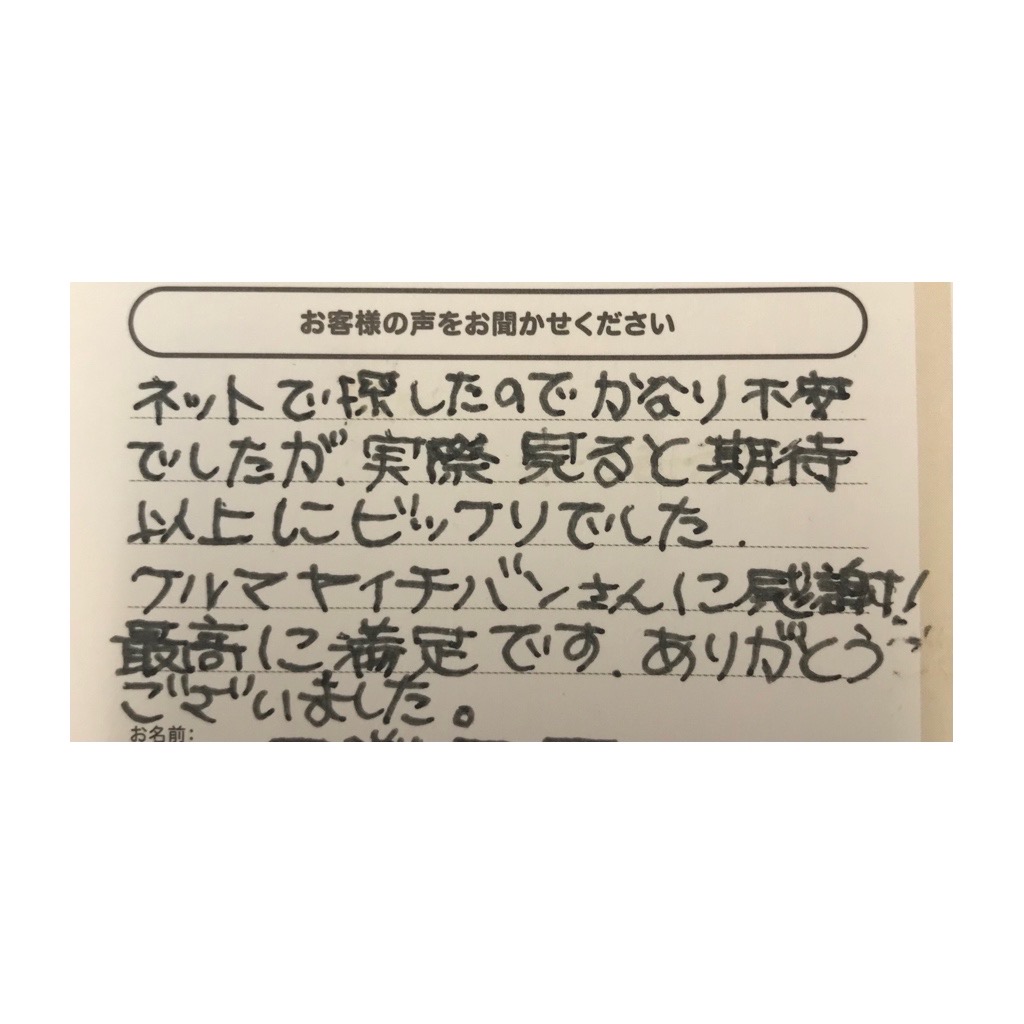 お客様の声をお聞かせください
ネットで探したのでかなり不安
でしたが、実際見ると期待
以上にビックリでした.
クルマヤイチバンさんに感謝!
最高に満足です.ありがとう
ございました。
お名前: